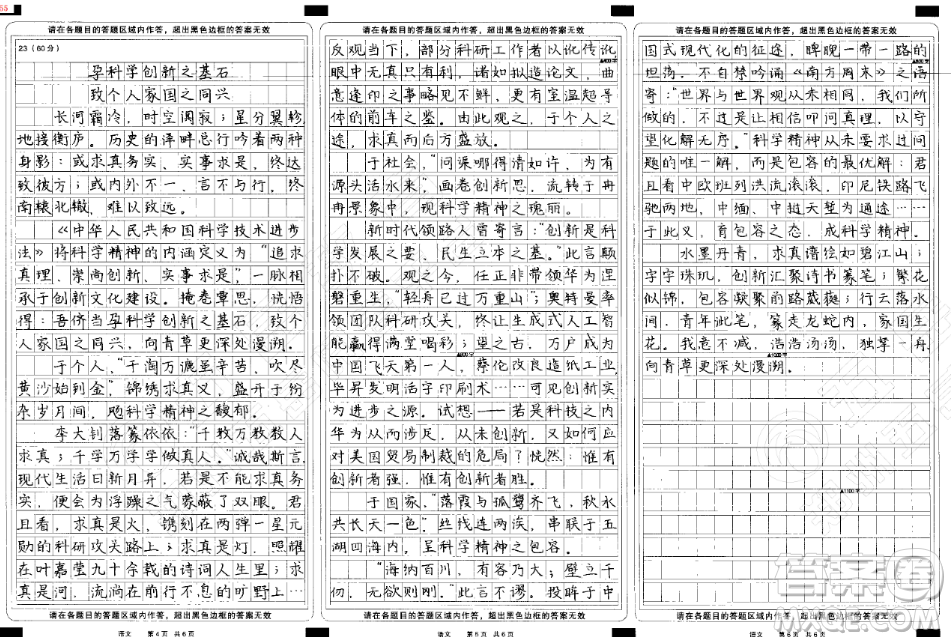 请在各题目的答题区域内作答，超出黑色边框的答案无效
23（60分）
孕科学创新之基石
致个人家国之同兴
长河霜冷，时空阔寂；星分翼轸，
地接衡庐。历史的泮畔总行吟着两种
身影：或求真务实、实事求是，终达
致彼方；或内外不一、言不与行，终
南辕北辙，难以致远。
《中华人民共和国科学技术进步
法》将科学精神的内涵定义为“追求
真理，崇尚创新，实事求是”，一脉相
承于创新文化建设。掩卷覃思，恍悟
得：吾侪当孕科学创新之基石，致个
人家国之同兴，向青草更深处漫溯。
于个人，“千淘万漉虽辛苦，吹尽
黄沙始到金”，锦绣求真义，盛开于纷
岁月间，飐科学精神之馥郁。
李大钊落篆依依：“千教万教教人
求真；千学万学学做真人。”诚哉斯言，
现代生活日新月异，若是不能求真务
实，便会为浮躁之气蒙蔽了双眼。君
且看，求真是火，镌刻在两弹一星元
勋的科研攻关路上；求真是灯，照耀
在叶嘉莹九十余载的诗词人生里；求
真是河，流淌在前行不息的旷野……
请在各题目的答题区域内作答，超出黑色边框的答案无效
语文 第4页 共6页
请在各题目的答题区域内作答，超出黑色边框的答案无效
反观当下，部分科研工作者以讹传讹，
眼中无真只有利，诸如拟造论文，曲
意逢印之事略见不鲜，更有室温超导
体的前车之鉴。由此观之，于个人之
途，求真而后方盛放。
于社会，“问渠哪得清如许，为有
源头活水来”，画卷创新思，流转于冉
冉景象中，现科学精神之瑰丽。
新时代领路人曾寄言：“创新是科
学发展之要、民生立本之基。”此言颠
扑不破。观之今，任正非带领华为涅
磐重生，“轻舟已过万重山；奥特曼率
领团队科研攻关，终让生成式人工智
能赢得满堂喝彩；望之古，万户成为
中国飞天第一人，蔡伦改良造纸工艺，
毕昇发明活字印刷术……可见创新实
为进步之源。试想——若是科技之内
华为从而涉足，从未创新，又如何应
对美国贸易制裁的危局？恍然：惟有
创新者强，惟有创新者胜。
于国家，“落霞与孤鹜齐飞，秋水
共长天一色”，丝线连两涘，串联于五
湖四海内，呈科学精神之包容。
“海纳百川，有容乃大；壁立千
仞，无欲则刚。”此言不谬。投眸于中
请在各题目的答题区域内作答，超出黑色边框的答案无效
语文 第5页 共6页
请在各题目的答题区域内作答，超出黑色边框的答案无效
国式现代化的征途，睥睨一带一路的
坦荡，不自禁吟诵《南方周末》之语
寄：“世界与世界观从未相同，我们所
做的，不过是让相信叩问真理，以守
望化解无序。”科学精神从未要求过问
题的唯一解，而是包容的最优解：君
且看中欧班列洪流滚滚，印尼铁路飞
驰两地，中缅、中链天堑为通途……
于此义，育包容之态，成科学精神。
水墨丹青，求真谱绘如碧江山；
字字珠玑，创新汇聚诗书篆笔；繁花
似锦，包容凝聚前路葳蕤；行云落水
间，青年泚笔，篆走龙蛇内，家国生
花。我意不减，浩浩汤汤，独掌一舟，
向青草更深处漫溯。
请在各题目的答题区域内作答，超出黑色边框的答案无效
语文 第6页 共6页
答案圈